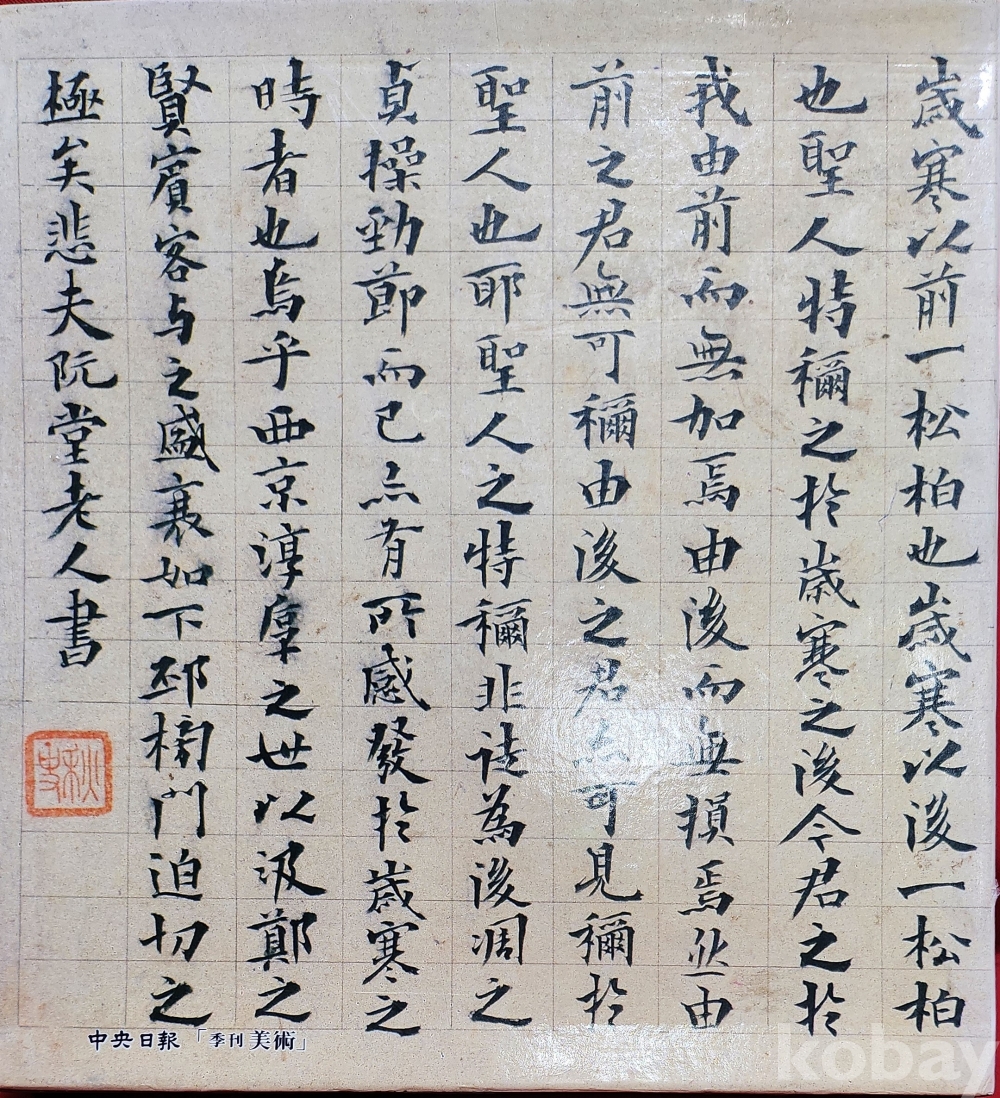 歲寒以前一松柏也歲寒以後一松柏
也聖人特稱之於歲寒之後今君之於
我由前而無加焉由後而無損焉然由
前之君無可稱由後之君亦可見稱於
聖人也耶聖人之特稱非徒為後凋之
貞操勁節而已亦有所感發於歲寒之
時者也烏乎西京淳厚之世以汲鄭之
賢賓客与之盛衰如下邳榜門迫切之
極矣悲夫阮堂老人書
秋史
中央日報「季刊美術」
kobay